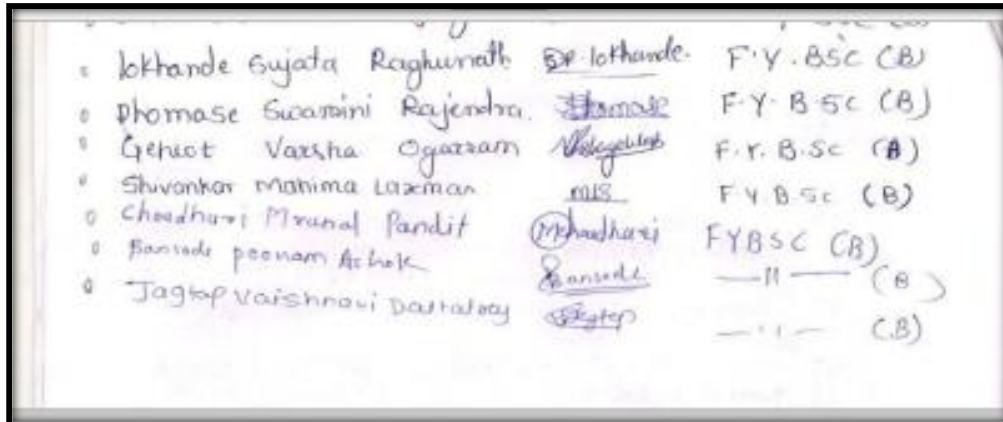 Lokhande Sujata Raghunath SR.lokhande. F.Y.BSC (B)
Dhomase Swamini Rajendra. F.Y.B.SC (B)
Gehlot Varsha Ogarram F.Y.B.Sc (A)
Shivankar Mahima Laxman MLS F Y B.Sc (B)
Choudhari Mrunal Pandit Mchaudhari FYBSC (B)
Bansode poonam Ashok Bansode —11— (B)
Jagtap Vaishnavi Dattatray Jagtap —11— (B)